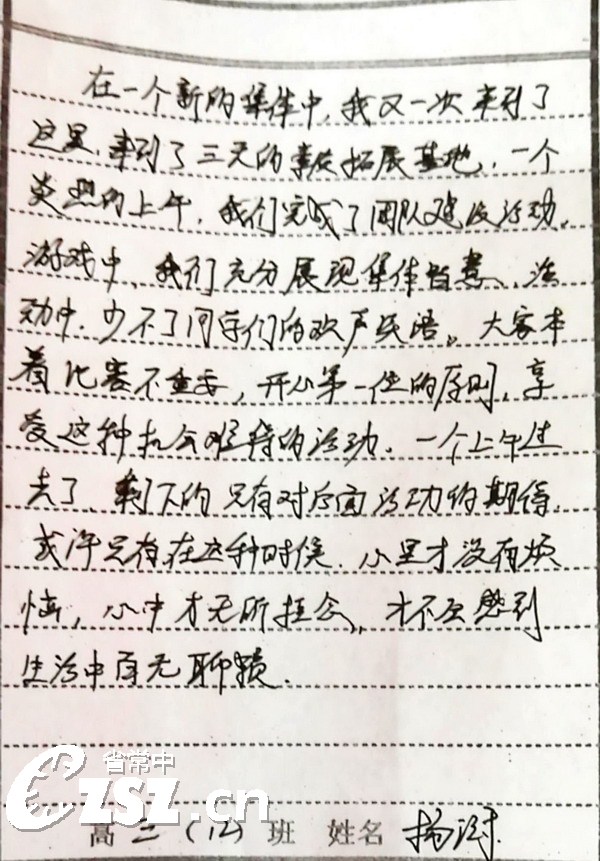 在一个新的集体中，我又一次来到了
这里，来到了三天的素质拓展基地，一个
炎热的上午，我们完成了团队建设活动。
游戏中，我们充分展现集体智慧，活
动中，少不了同学们的欢声笑语。大家本
着比赛不重要，开心第一位的原则，享
受这种机会难得的活动。一个上午过
去了，剩下的只有对后面活动的期待，
或许只有在这种时候，心里才没有烦
恼，心中才无所挂念，才不会感到
生活中百无聊赖。
省常中
CZSZ.cn
高三（12）班 姓名 杨